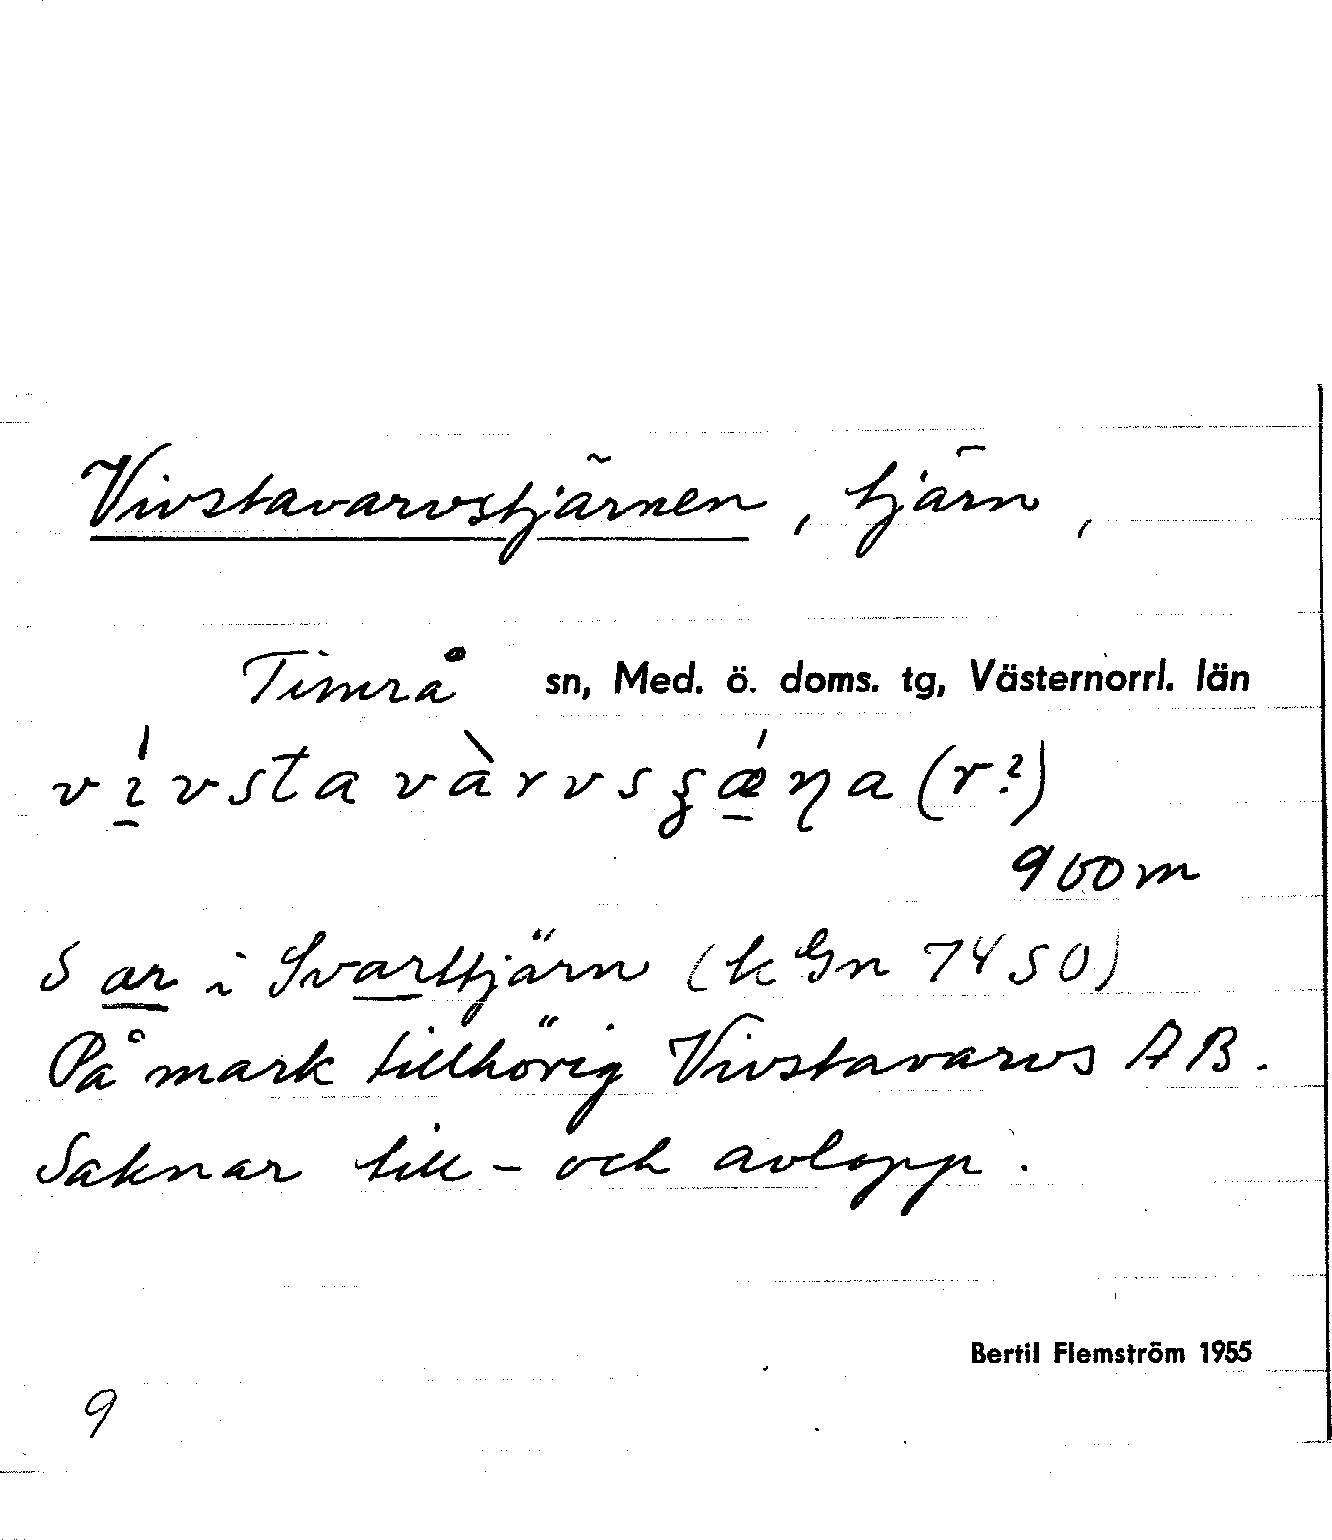 Vivstavarvstjärnen, tjärn,
Timrå sn, Med. ö. doms. tg, Västernorrl. län
(r?)
900m
S ar i Svarttjärn (k Gn 7450)
På mark tillhörig Vivstavarvs AB.
Saknar till- och avlopp.
Bertil Flemström 1955
9